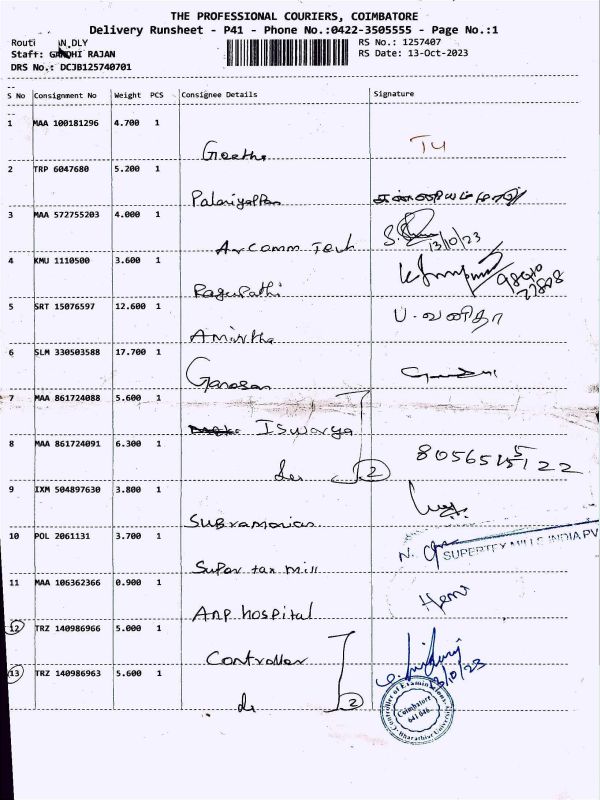 THE PROFESSIONAL COURIERS, COIMBATORE
Delivery Runsheet - P41 - Phone No.:0422-3505555 - Page No.:1
Routi AN_DLY
RS No.: 1257407
Staff: GANDHI RAJAN
RS Date: 13-Oct-2023
DRS No.: DCJB125740701
S No Consignment No Weight PCS Consignee Details Signature
1 MAA 100181296 4.700 1
Geetha
2 TRP 6047680 5.200 1
Palaniyappan
3 MAA 572755203 4.000 1
S. 13/10/23
Arcomm Tech
4 KMU 1110500 3.600 1
98010
27808
Ragupathi
5 SRT 15076597 12.600 1
ப. வனிதா
Amirtha
6 SLM 330503588 17.700 1
Ganesan
7 MAA 861724088 5.600 1
Iswarya
8 MAA 861724091 6.300 1
do 2
9 IXM 504897630 3.800 1
Subramanian
10 POL 2061131 3.700 1
N.
SUPERTEX MILLS INDIA PV
Super tax mill
11 MAA 106362366 0.900 1
Hema
Anp hospital
12 TRZ 140986966 5.000 1
Controller
13 TRZ 140986963 5.600 1
13/10/23
do 2
Controller of Examinations
Coimbatore
641 046.
Bharathiar University